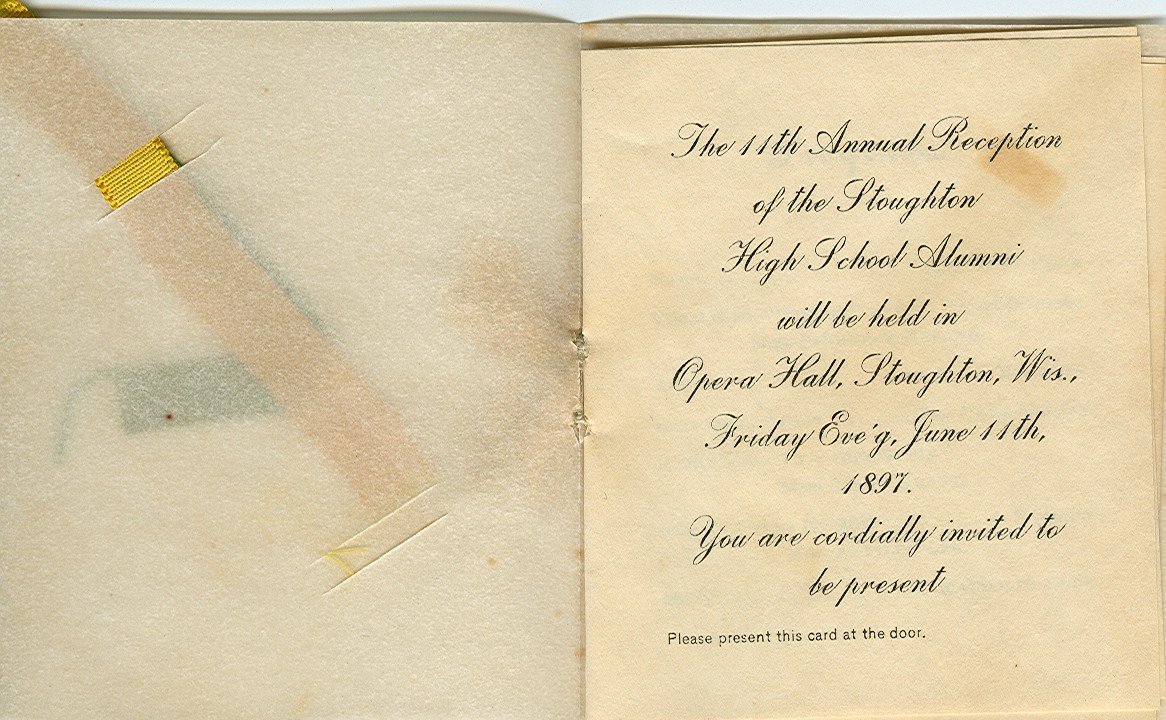 The 11th Annual Reception
of the Stoughton
High School Alumni
will be held in
Opera Hall, Stoughton, Wis.,
Friday Eve'g, June 11th,
1897.
You are cordially invited to
be present
Please present this card at the door.